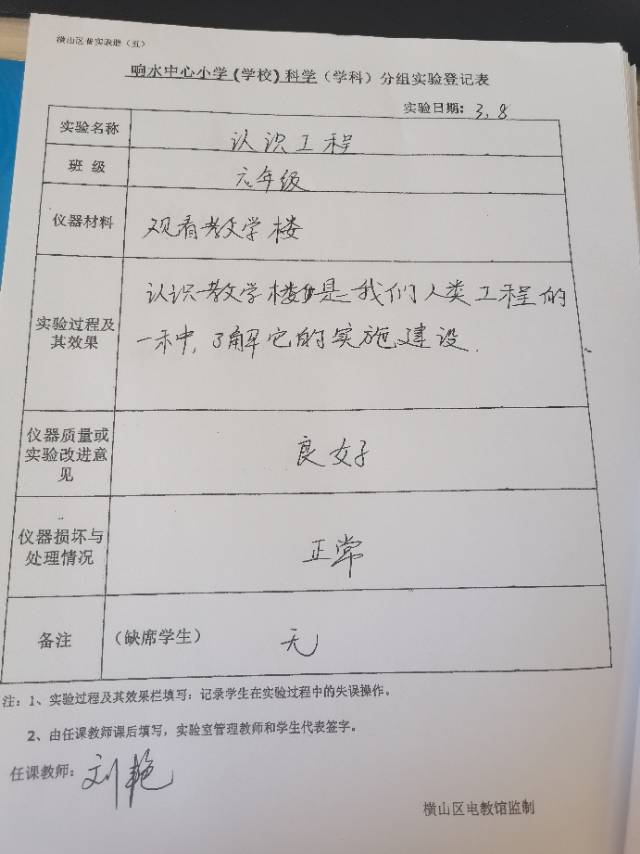 响水中心小学(学校)科学(学科)分组实验登记表
实验日期: 3.8
实验名称 认识工程
班级 六年级
仪器材料 观看教学楼
实验过程及其效果 认识教学楼是我们人类工程的
一种,了解它的实施建设.
仪器质量或实验改进意见 良好
仪器损坏与处理情况 正常
备注 (缺席学生) 无
注:1、实验过程及其效果栏填写:记录学生在实验过程中的失误操作。
2、由任课教师课后填写,实验室管理教师和学生代表签字。
任课教师:刘艳
横山区电教馆监制